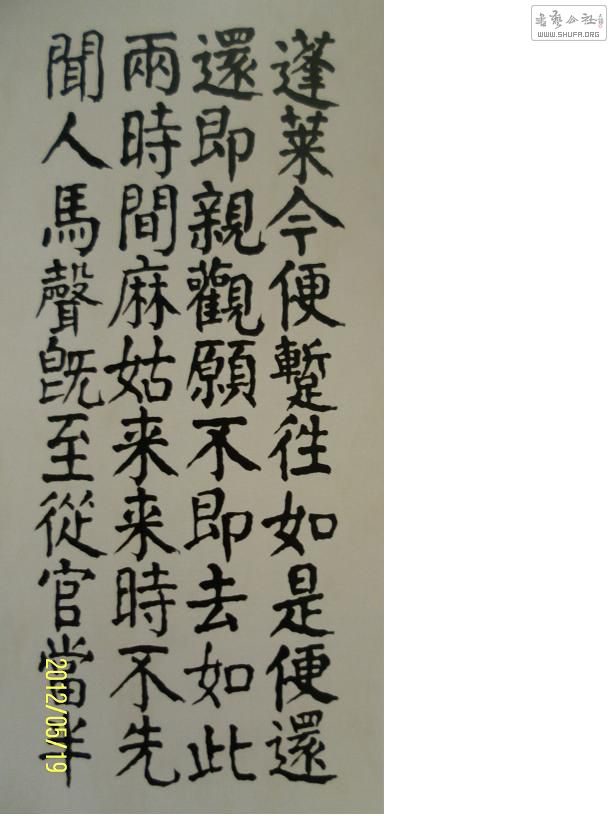 蓬莱今便蹔往如是便還
還即親觀願不即去如此
兩時間麻姑来来時不先
聞人馬聲既至從官當半
2012/05/19
書藝公社
WWW.SHUFA.ORG